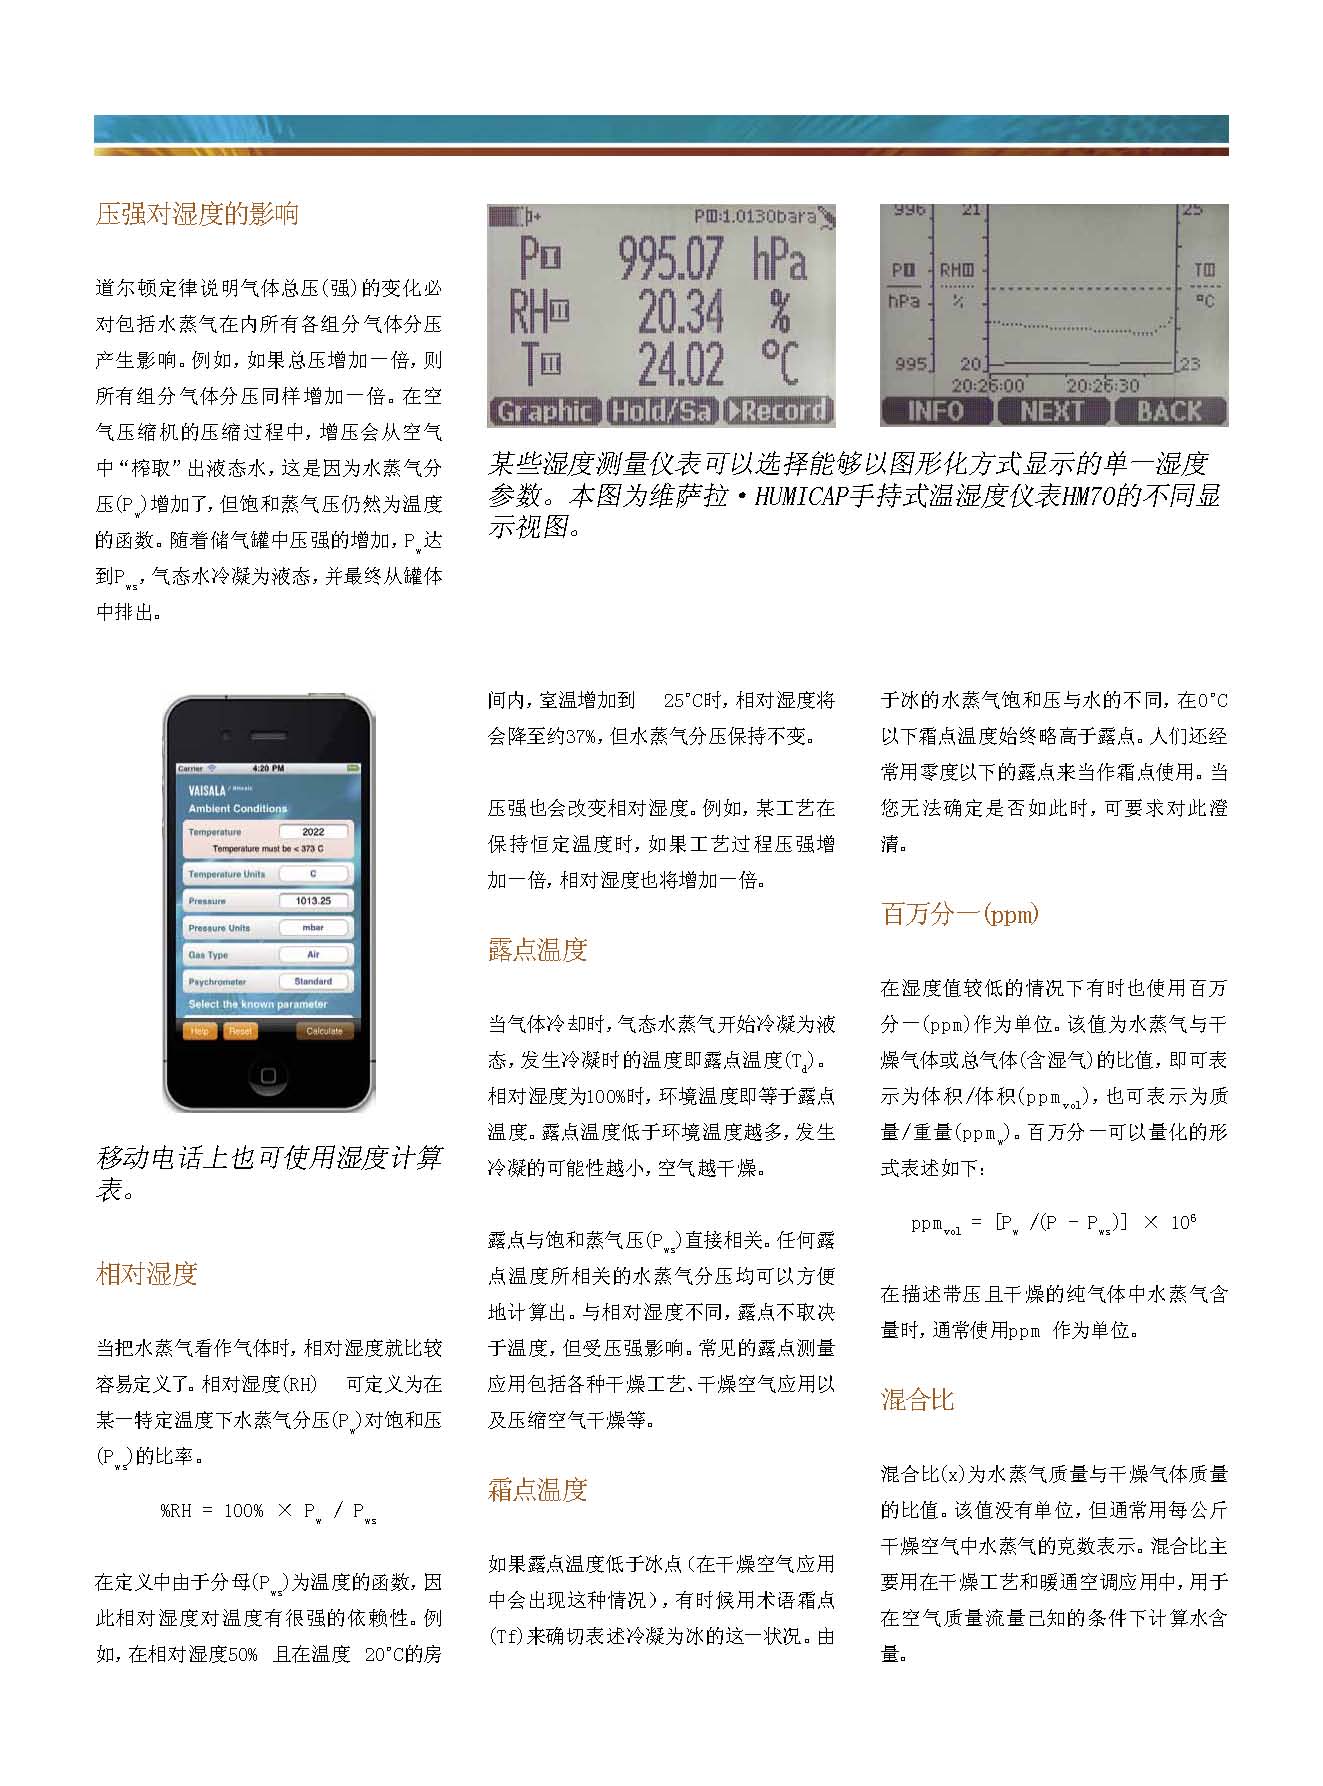 压强对湿度的影响
道尔顿定律说明气体总压(强)的变化必
对包括水蒸气在内所有各组分气体分压
产生影响。例如,如果总压增加一倍,则
所有组分气体分压同样增加一倍。在空
气压缩机的压缩过程中,增压会从空气
中“榨取”出液态水,这是因为水蒸气分
压(Pw)增加了,但饱和蒸气压仍然为温度
的函数。随着储气罐中压强的增加,Pw达
到Pws,气态水冷凝为液态,并最终从罐体
中排出。
PⅡ:1.0130bara
PⅡ 995.07 hPa
RHⅢ 20.34 %
TⅢ 24.02 °C
Graphic Hold/Sa ▶Record
996 21 25
PⅡ RHⅢ TⅢ
hPa % °C
995 20 23
20:26:00 20:26:30
INFO NEXT BACK
某些湿度测量仪表可以选择能够以图形化方式显示的单一湿度
参数。本图为维萨拉·HUMICAP手持式温湿度仪表HM70的不同显
示视图。
Carrier 4:20 PM
VAISALA
Ambient Conditions
Temperature 2022
Temperature must be < 373 C
Temperature Units C
Pressure 1013.25
Pressure Units mbar
Gas Type Air
Psychrometer Standard
Select the known parameter
Help Reset Calculate
移动电话上也可使用湿度计算
表。
相对湿度
当把水蒸气看作气体时,相对湿度就比较
容易定义了。相对湿度(RH) 可定义为在
某一特定温度下水蒸气分压(Pw)对饱和压
(Pws)的比率。
%RH = 100% × Pw / Pws
在定义中由于分母(Pws)为温度的函数,因
此相对湿度对温度有很强的依赖性。例
如,在相对湿度50% 且在温度 20°C的房
间内,室温增加到 25°C时,相对湿度将
会降至约37%,但水蒸气分压保持不变。
压强也会改变相对湿度。例如,某工艺在
保持恒定温度时,如果工艺过程压强增
加一倍,相对湿度也将增加一倍。
露点温度
当气体冷却时,气态水蒸气开始冷凝为液
态,发生冷凝时的温度即露点温度(Td)。
相对湿度为100%时,环境温度即等于露点
温度。露点温度低于环境温度越多,发生
冷凝的可能性越小,空气越干燥。
露点与饱和蒸气压(Pws)直接相关。任何露
点温度所相关的水蒸气分压均可以方便
地计算出。与相对湿度不同,露点不取决
于温度,但受压强影响。常见的露点测量
应用包括各种干燥工艺、干燥空气应用以
及压缩空气干燥等。
霜点温度
如果露点温度低于冰点(在干燥空气应用
中会出现这种情况),有时候用术语霜点
(Tf)来确切表述冷凝为冰的这一状况。由
于冰的水蒸气饱和压与水的不同,在0°C
以下霜点温度始终略高于露点。人们还经
常用零度以下的露点来当作霜点使用。当
您无法确定是否如此时,可要求对此澄
清。
百万分一(ppm)
在湿度值较低的情况下有时也使用百万
分一(ppm)作为单位。该值为水蒸气与干
燥气体或总气体(含湿气)的比值,即可表
示为体积/体积(ppmvol),也可表示为质
量/重量(ppmw)。百万分一可以量化的形
式表述如下:
ppmvol = [Pw /(P - Pws)] × 10⁶
在描述带压且干燥的纯气体中水蒸气含
量时,通常使用ppm 作为单位。
混合比
混合比(x)为水蒸气质量与干燥气体质量
的比值。该值没有单位,但通常用每公斤
干燥空气中水蒸气的克数表示。混合比主
要用在干燥工艺和暖通空调应用中,用于
在空气质量流量已知的条件下计算水含
量。